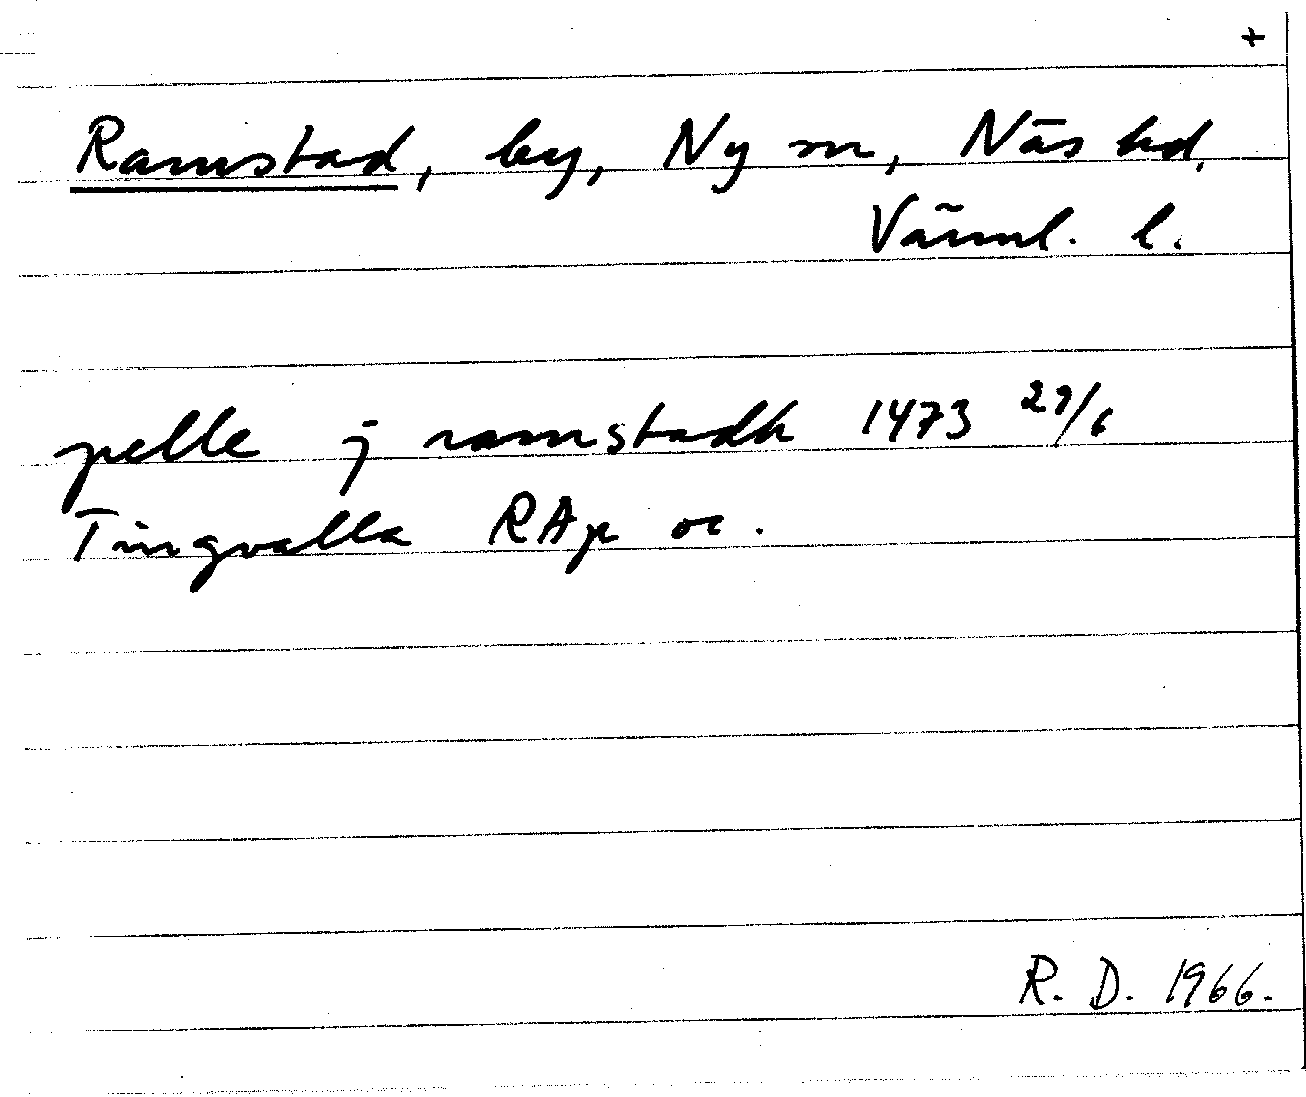 +
Ramstad, by, Ny sn, Näs hd,
Värml. l.
pelle j ramstadh 1473 29/6
Tingvalla RAp or.
R. D. 1966.